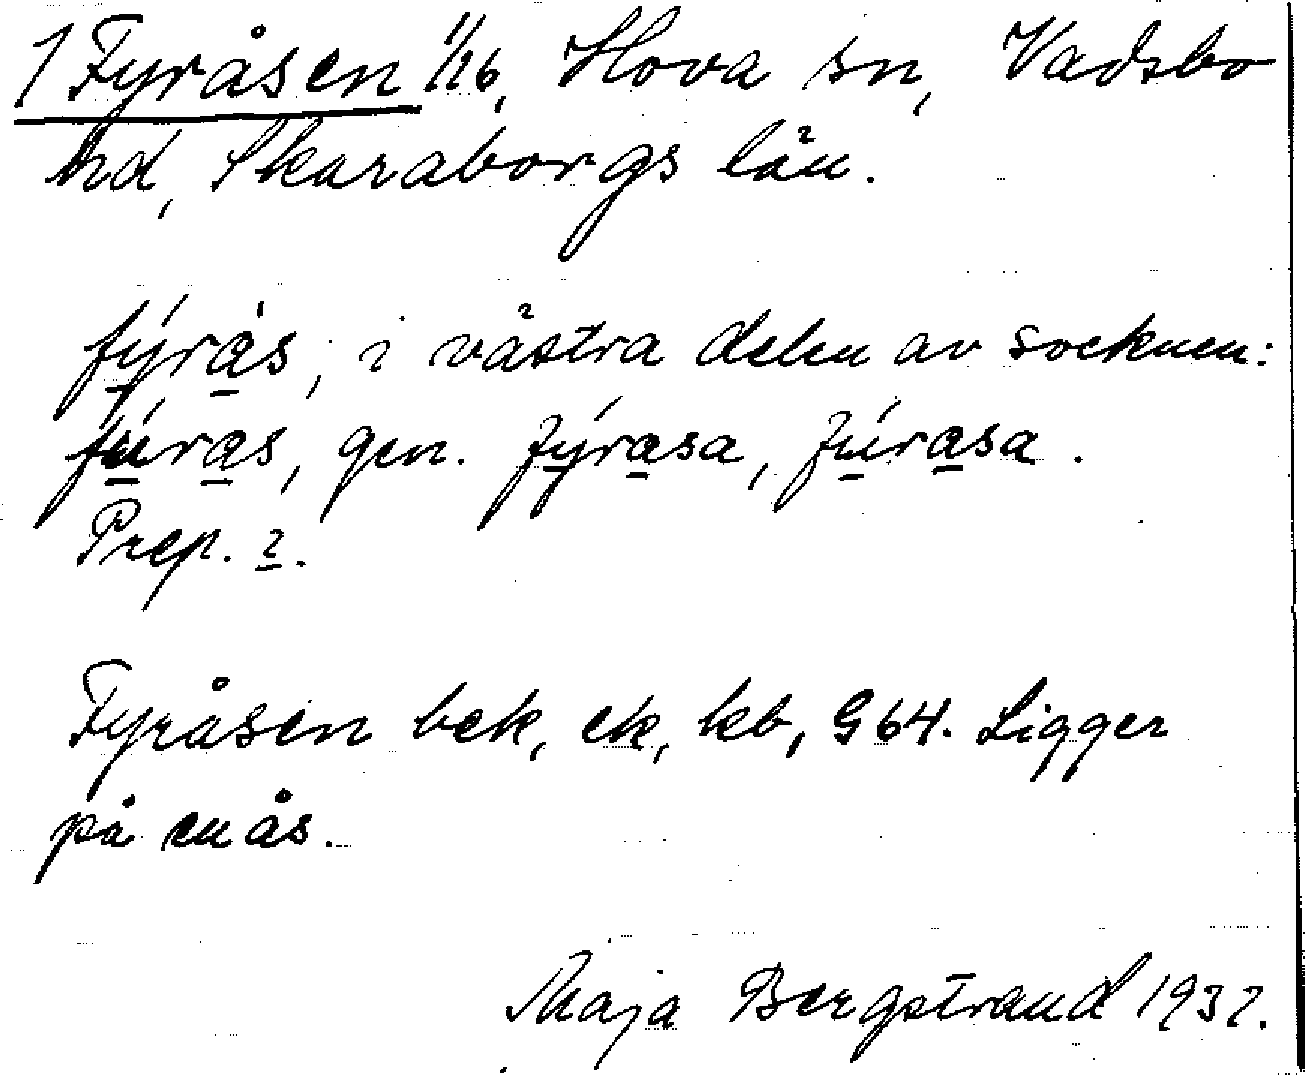 1 Fyråsen 1/16, Hova sn, Vadsbo
hd, Skaraborgs län.
fý̱ra̱̍s, i västra delen av socknen:
fú̱ra̱s, gen. fý̱ra̱sa, fú̱ra̱sa.
Prep. 2.
Fyråsen bek, ek, kb, G64. Ligger
på en ås.
Maja Bergstrand 1937.